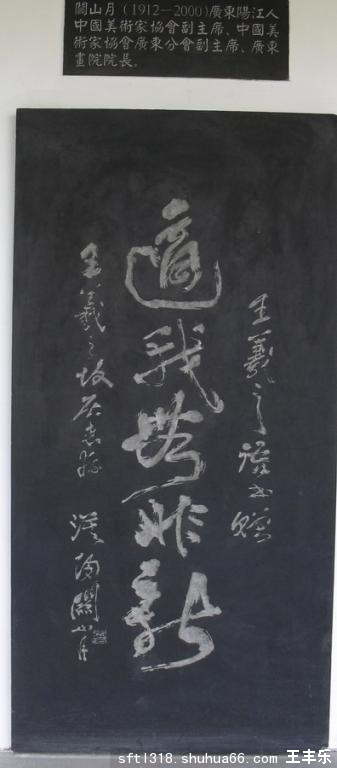 關山月（1912—2000）廣東陽江人
中國美術家協會副主席、中國美
術家協會廣東分會副主席、廣東
畫院院長。
王羲之語書贈
適我無非新
王羲之故居 漠陽關山月
sftl318.shuhua66.com 王丰乐